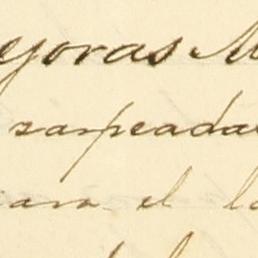 ejoras M
zarpeada
para el la